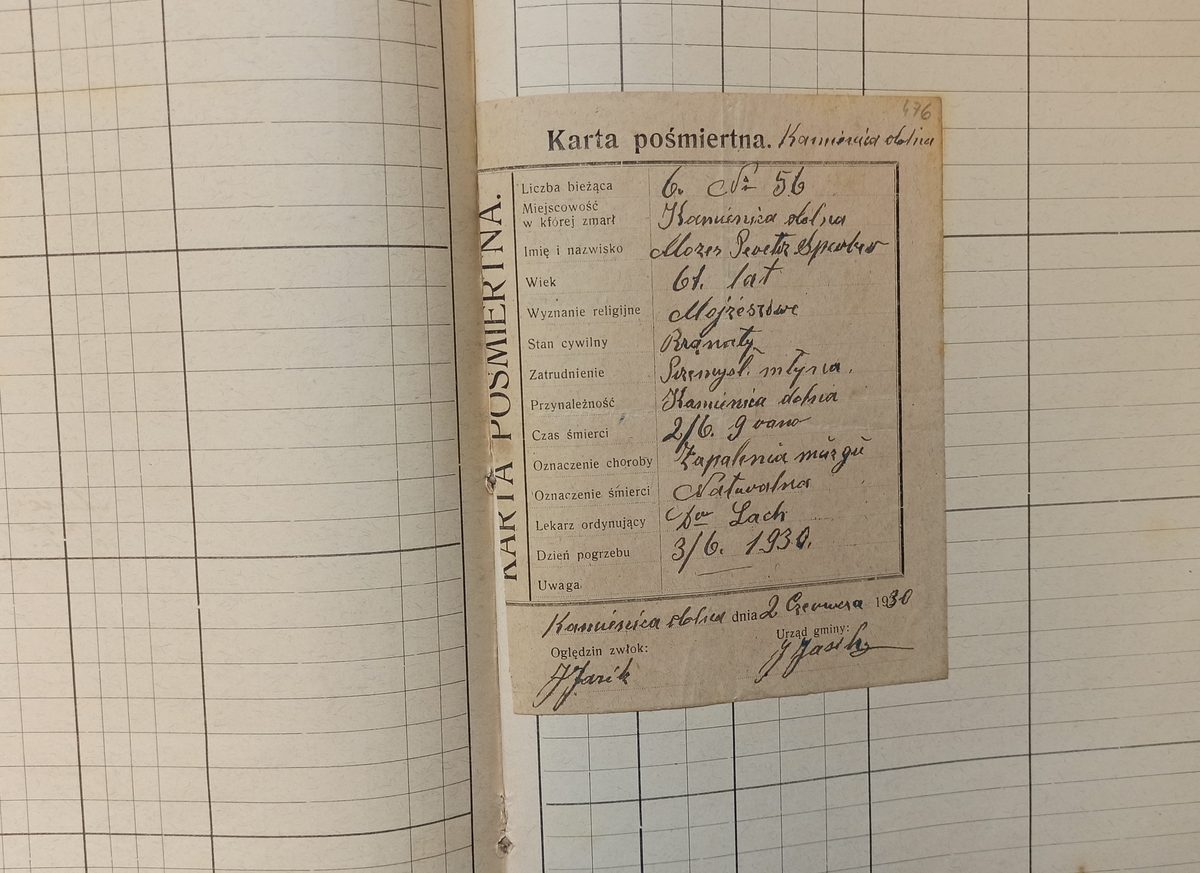 476
Karta pośmiertna. Kamienica dolna
KARTA POŚMIERTNA.
Liczba bieżąca 6. № 56
Miejscowość
w której zmarł Kamienica dolna
Imię i nazwisko Mozes
Wiek 61. lat
Wyznanie religijne Mojżeszowe
Stan cywilny
Zatrudnienie Przemysł. młyna.
Przynależność Kamienica dolna
Czas śmierci 2/6. 9 rano
Oznaczenie choroby Zapalenia muzgu
Oznaczenie śmierci Naturalna
Lekarz ordynujący Dor Lach
Dzień pogrzebu 3/6. 1930.
Uwaga
Kamienica dolna dnia 2 Czerwca 1930
Oględzin zwłok: Urząd gminy:
J Jasik J Jasik